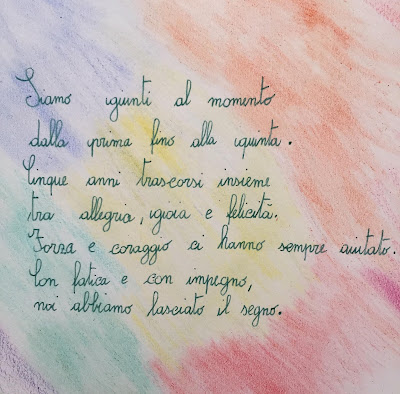 Siamo giunti al momento
dalla prima fino alla quinta.
Cinque anni trascorsi insieme
tra allegria, gioia e felicità.
Forza e coraggio ci hanno sempre aiutato.
Con fatica e con impegno,
noi abbiamo lasciato il segno.